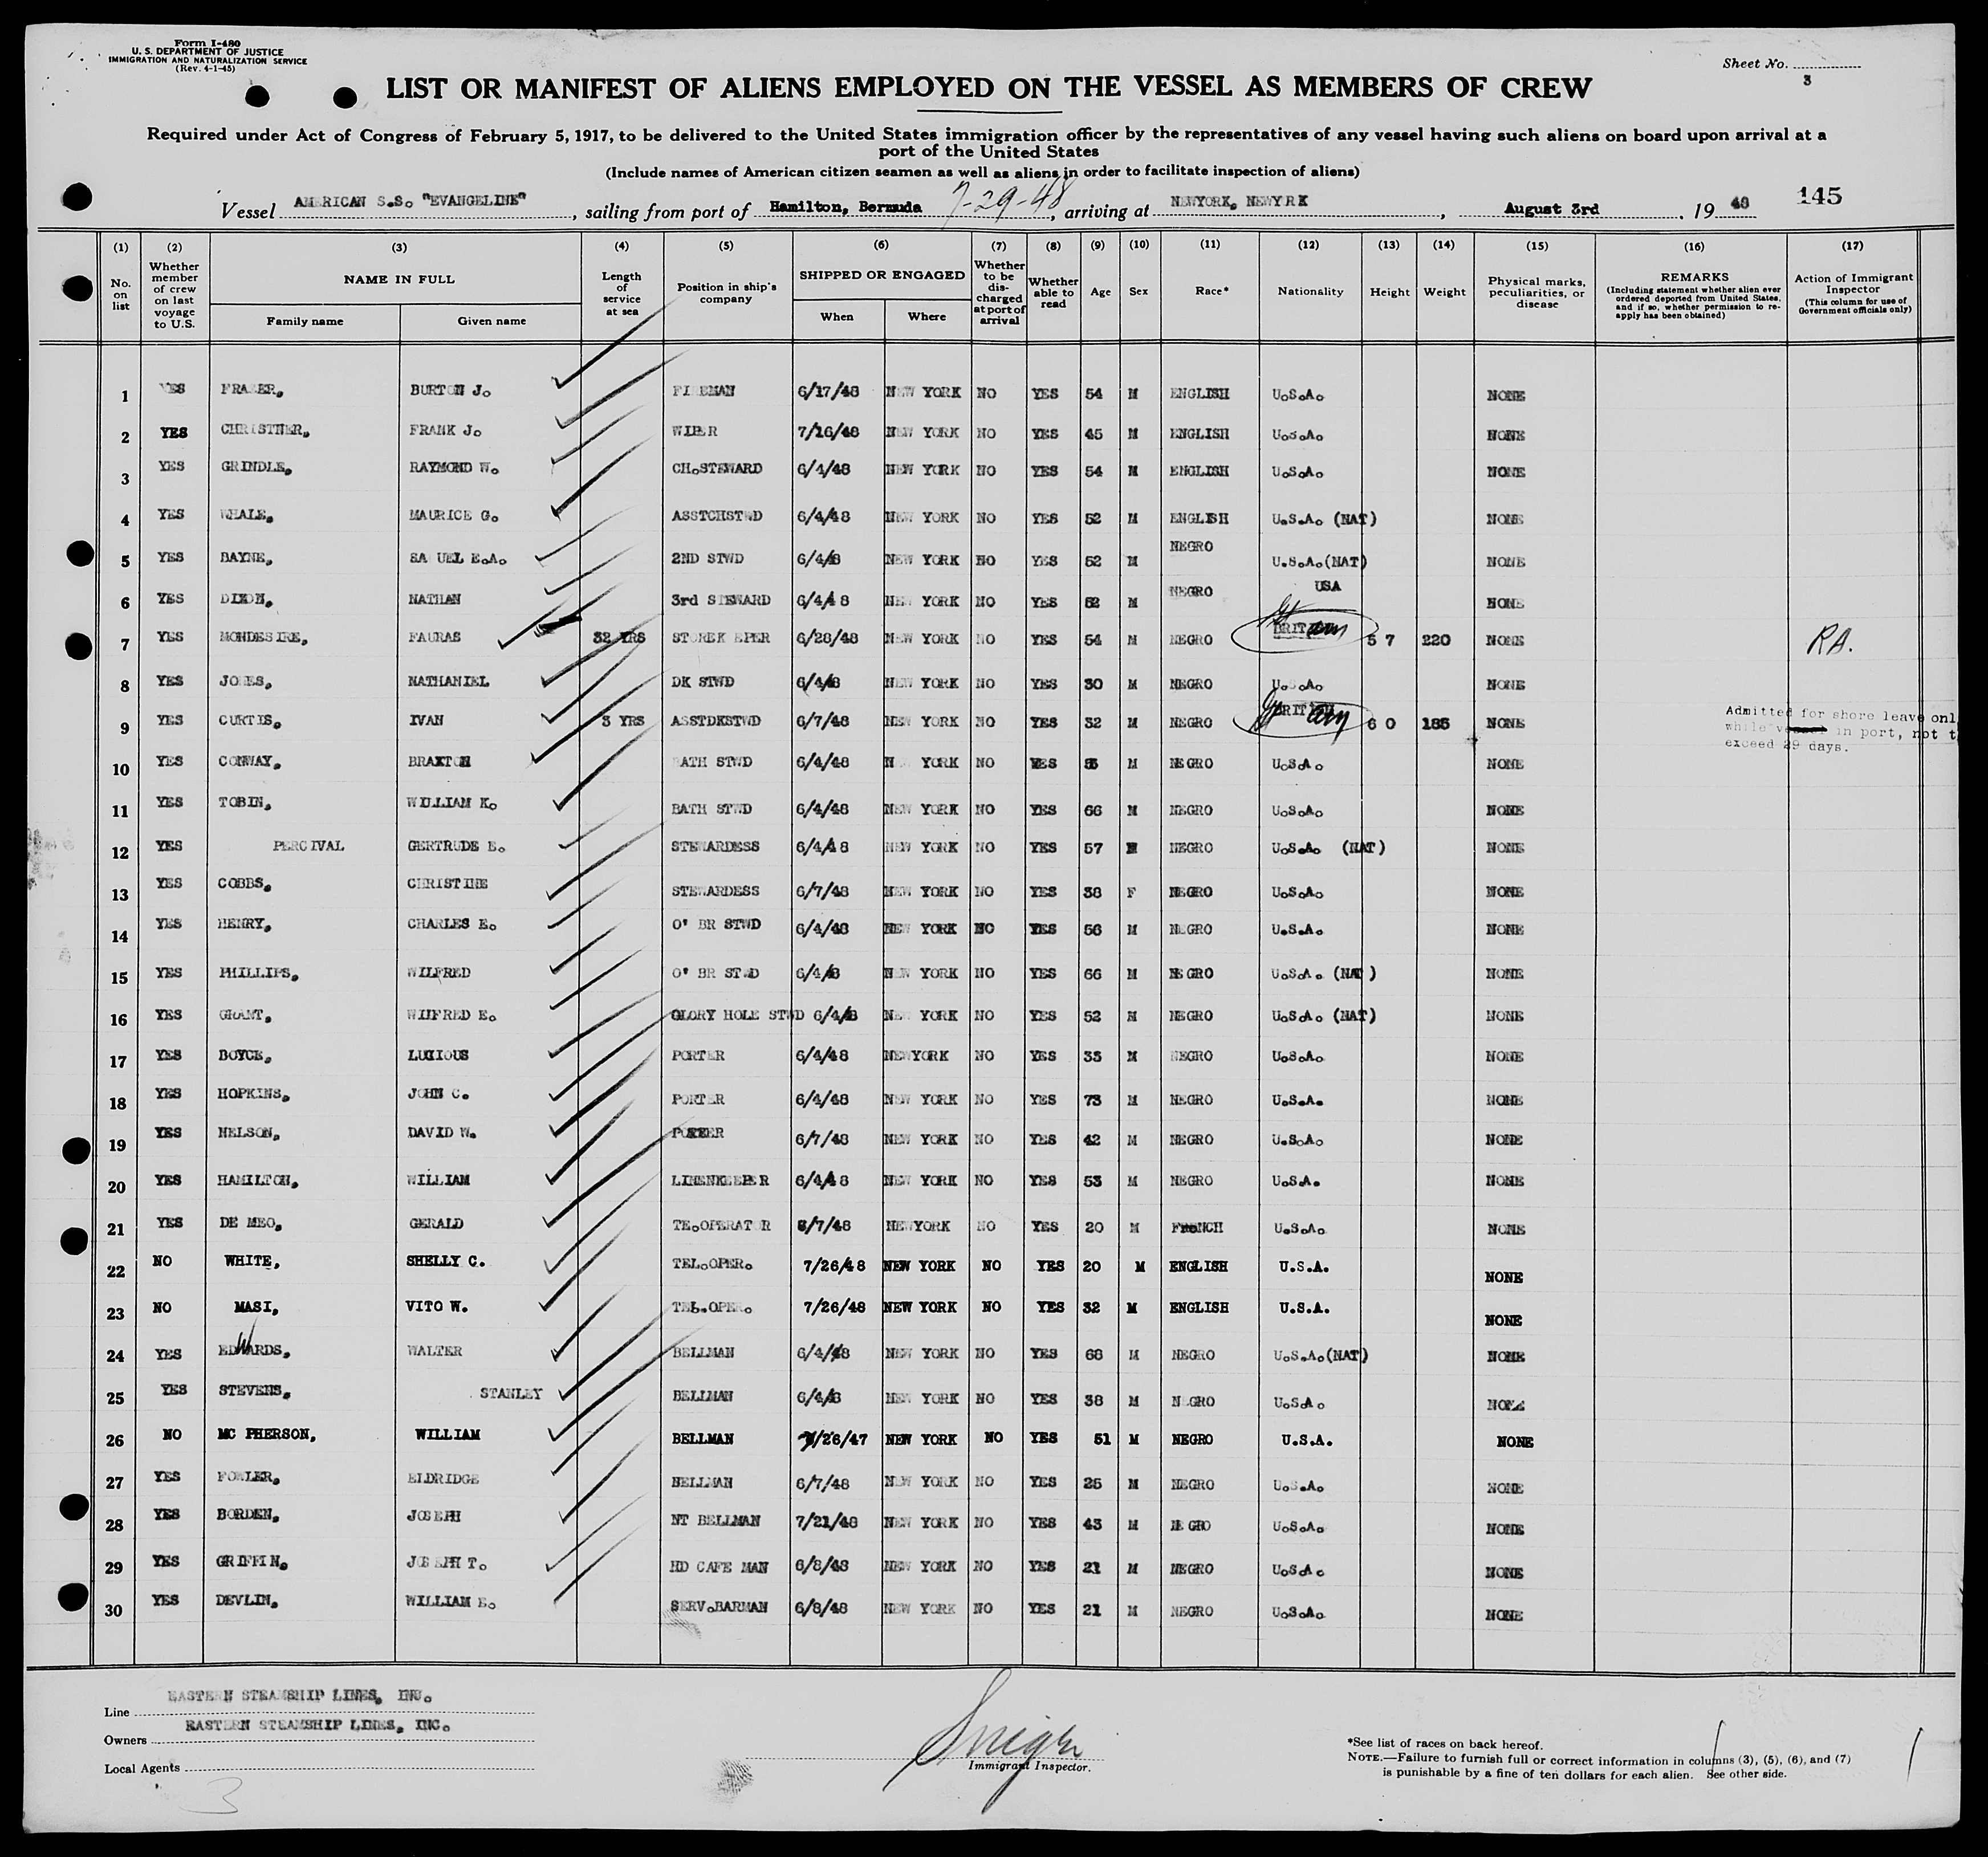 Form I-480
U. S. DEPARTMENT OF JUSTICE
IMMIGRATION AND NATURALIZATION SERVICE
(Rev. 4-1-45)
Sheet No.
3
LIST OR MANIFEST OF ALIENS EMPLOYED ON THE VESSEL AS MEMBERS OF CREW
Required under Act of Congress of February 5, 1917, to be delivered to the United States immigration officer by the representatives of any vessel having such aliens on board upon arrival at a
port of the United States
(Include names of American citizen seamen as well as aliens in order to facilitate inspection of aliens)
Vessel AMERICAN S.S. "EVANGELINE", sailing from port of Hamilton, Bermuda 7-29-48, arriving at NEWYORK, NEWYRK, August 3rd, 19 48 145
(1) (2) (3) (4) (5) (6) (7) (8) (9) (10) (11) (12) (13) (14) (15) (16) (17)
No. on list
Whether member of crew on last voyage to U.S.
NAME IN FULL
Family name Given name
Length of service at sea
Position in ship's company
SHIPPED OR ENGAGED
When Where
Whether to be discharged at port of arrival
Whether able to read
Age Sex Race* Nationality Height Weight
Physical marks, peculiarities, or disease
REMARKS
(Including statement whether alien ever ordered deported from United States, and if so, whether permission to reapply has been obtained)
Action of Immigrant Inspector
(This column for use of Government officials only)
1 YES FRAZER, BURTON J. FIREMAN 6/17/48 NEW YORK NO YES 54 M ENGLISH U.S.A. NONE
2 YES CHRISTNER, FRANK J. WIPER 7/16/48 NEW YORK NO YES 45 M ENGLISH U.S.A. NONE
3 YES GRINDLE, RAYMOND W. CH.STEWARD 6/4/48 NEW YORK NO YES 54 M ENGLISH U.S.A. NONE
4 YES WHALE, MAURICE G. ASSTCHSTWD 6/4/48 NEW YORK NO YES 52 M ENGLISH U.S.A. (NAT) NONE
5 YES BAYNE, SA UEL E.A. 2ND STWD 6/4/48 NEW YORK NO YES 52 M NEGRO U.S.A.(NAT) NONE
6 YES DIXON, NATHAN 3rd STEWARD 6/4/48 NEW YORK NO YES 52 M NEGRO USA NONE
7 YES MONDESIRE, FAURAS 32 YRS STOREK EPER 6/28/48 NEW YORK NO YES 54 M NEGRO 5 7 220 NONE RA.
8 YES JONES, NATHANIEL DK STWD 6/4/48 NEW YORK NO YES 30 M NEGRO U.S.A. NONE
9 YES CURTIS, IVAN 3 YRS ASSTDKSTWD 6/7/48 NEW YORK NO YES 32 M NEGRO 6 0 185 NONE
Admitted for shore leave onl
while vessel in port, not t
exceed 29 days.
10 YES CONWAY, BRAXTON BATH STWD 6/4/48 NEW YORK NO YES M NEGRO U.S.A. NONE
11 YES TOBIN, WILLIAM K. BATH STWD 6/4/48 NEW YORK NO YES 66 M NEGRO U.S.A. NONE
12 YES PERCIVAL GERTRUDE E. STEWARDESS 6/4/48 NEW YORK NO YES 57 NEGRO U.S.A. (NAT) NONE
13 YES COBBS, CHRISTINE STEWARDESS 6/7/48 NEW YORK NO YES 38 F NEGRO U.S.A. NONE
14 YES HENRY, CHARLES E. O' BR STWD 6/4/48 NEW YORK NO YES 56 M NEGRO U.S.A. NONE
15 YES PHILLIPS, WILFRED O' BR STWD 6/4/48 NEW YORK NO YES 66 M NEGRO U.S.A. (NAT) NONE
16 YES GRANT, WILFRED E. GLORY HOLE STWD 6/4/48 NEW YORK NO YES 52 M NEGRO U.S.A. (NAT) NONE
17 YES BOYCE, LUXIOUS PORTER 6/4/48 NEWYORK NO YES 35 M NEGRO U.S.A. NONE
18 YES HOPKINS, JOHN C. PORTER 6/4/48 NEW YORK NO YES 73 M NEGRO U.S.A. NONE
19 YES NELSON, DAVID W. PORTER 6/7/48 NEW YORK NO YES 42 M NEGRO U.S.A. NONE
20 YES HAMILTON, WILLIAM LINENKEEPER 6/4/48 NEW YORK NO YES 53 M NEGRO U.S.A. NONE
21 YES DE MEO, GERALD TE.OPERATOR 6/7/48 NEWYORK NO YES 20 M FRENCH U.S.A. NONE
22 NO WHITE, SHELLY C. TEL.OPER. 7/26/48 NEW YORK NO YES 20 M ENGLISH U.S.A. NONE
23 NO MASI, VITO W. TEL.OPER. 7/26/48 NEW YORK NO YES 32 M ENGLISH U.S.A. NONE
24 YES EDWARDS, WALTER BELLMAN 6/4/48 NEW YORK NO YES 68 M NEGRO U.S.A.(NAT) NONE
25 YES STEVENS, STANLEY BELLMAN 6/4/48 NEW YORK NO YES 38 M NEGRO U.S.A. NONE
26 NO MC PHERSON, WILLIAM BELLMAN 7/26/47 NEW YORK NO YES 51 M NEGRO U.S.A. NONE
27 YES FOWLER, ELDRIDGE BELLMAN 6/7/48 NEW YORK NO YES 25 M NEGRO U.S.A. NONE
28 YES BORDEN, JOSEPH NT BELLMAN 7/21/48 NEW YORK NO YES 43 M NEGRO U.S.A. NONE
29 YES GRIFFIN, JOSEPH T. HD CAFE MAN 6/8/48 NEW YORK NO YES 21 M NEGRO U.S.A. NONE
30 YES DEVLIN, WILLIAM E. SERV.BARMAN 6/8/48 NEW YORK NO YES 21 M NEGRO U.S.A. NONE
Line EASTERN STEAMSHIP LINES, INC.
Owners EASTERN STEAMSHIP LINES, INC.
Local Agents
3
Immigrant Inspector.
*See list of races on back hereof.
NOTE.—Failure to furnish full or correct information in columns (3), (5), (6), and (7)
is punishable by a fine of ten dollars for each alien. See other side.